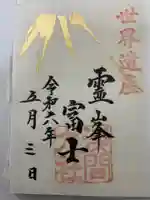 世界遺産
霊峯
富士
令和六年
五月三日